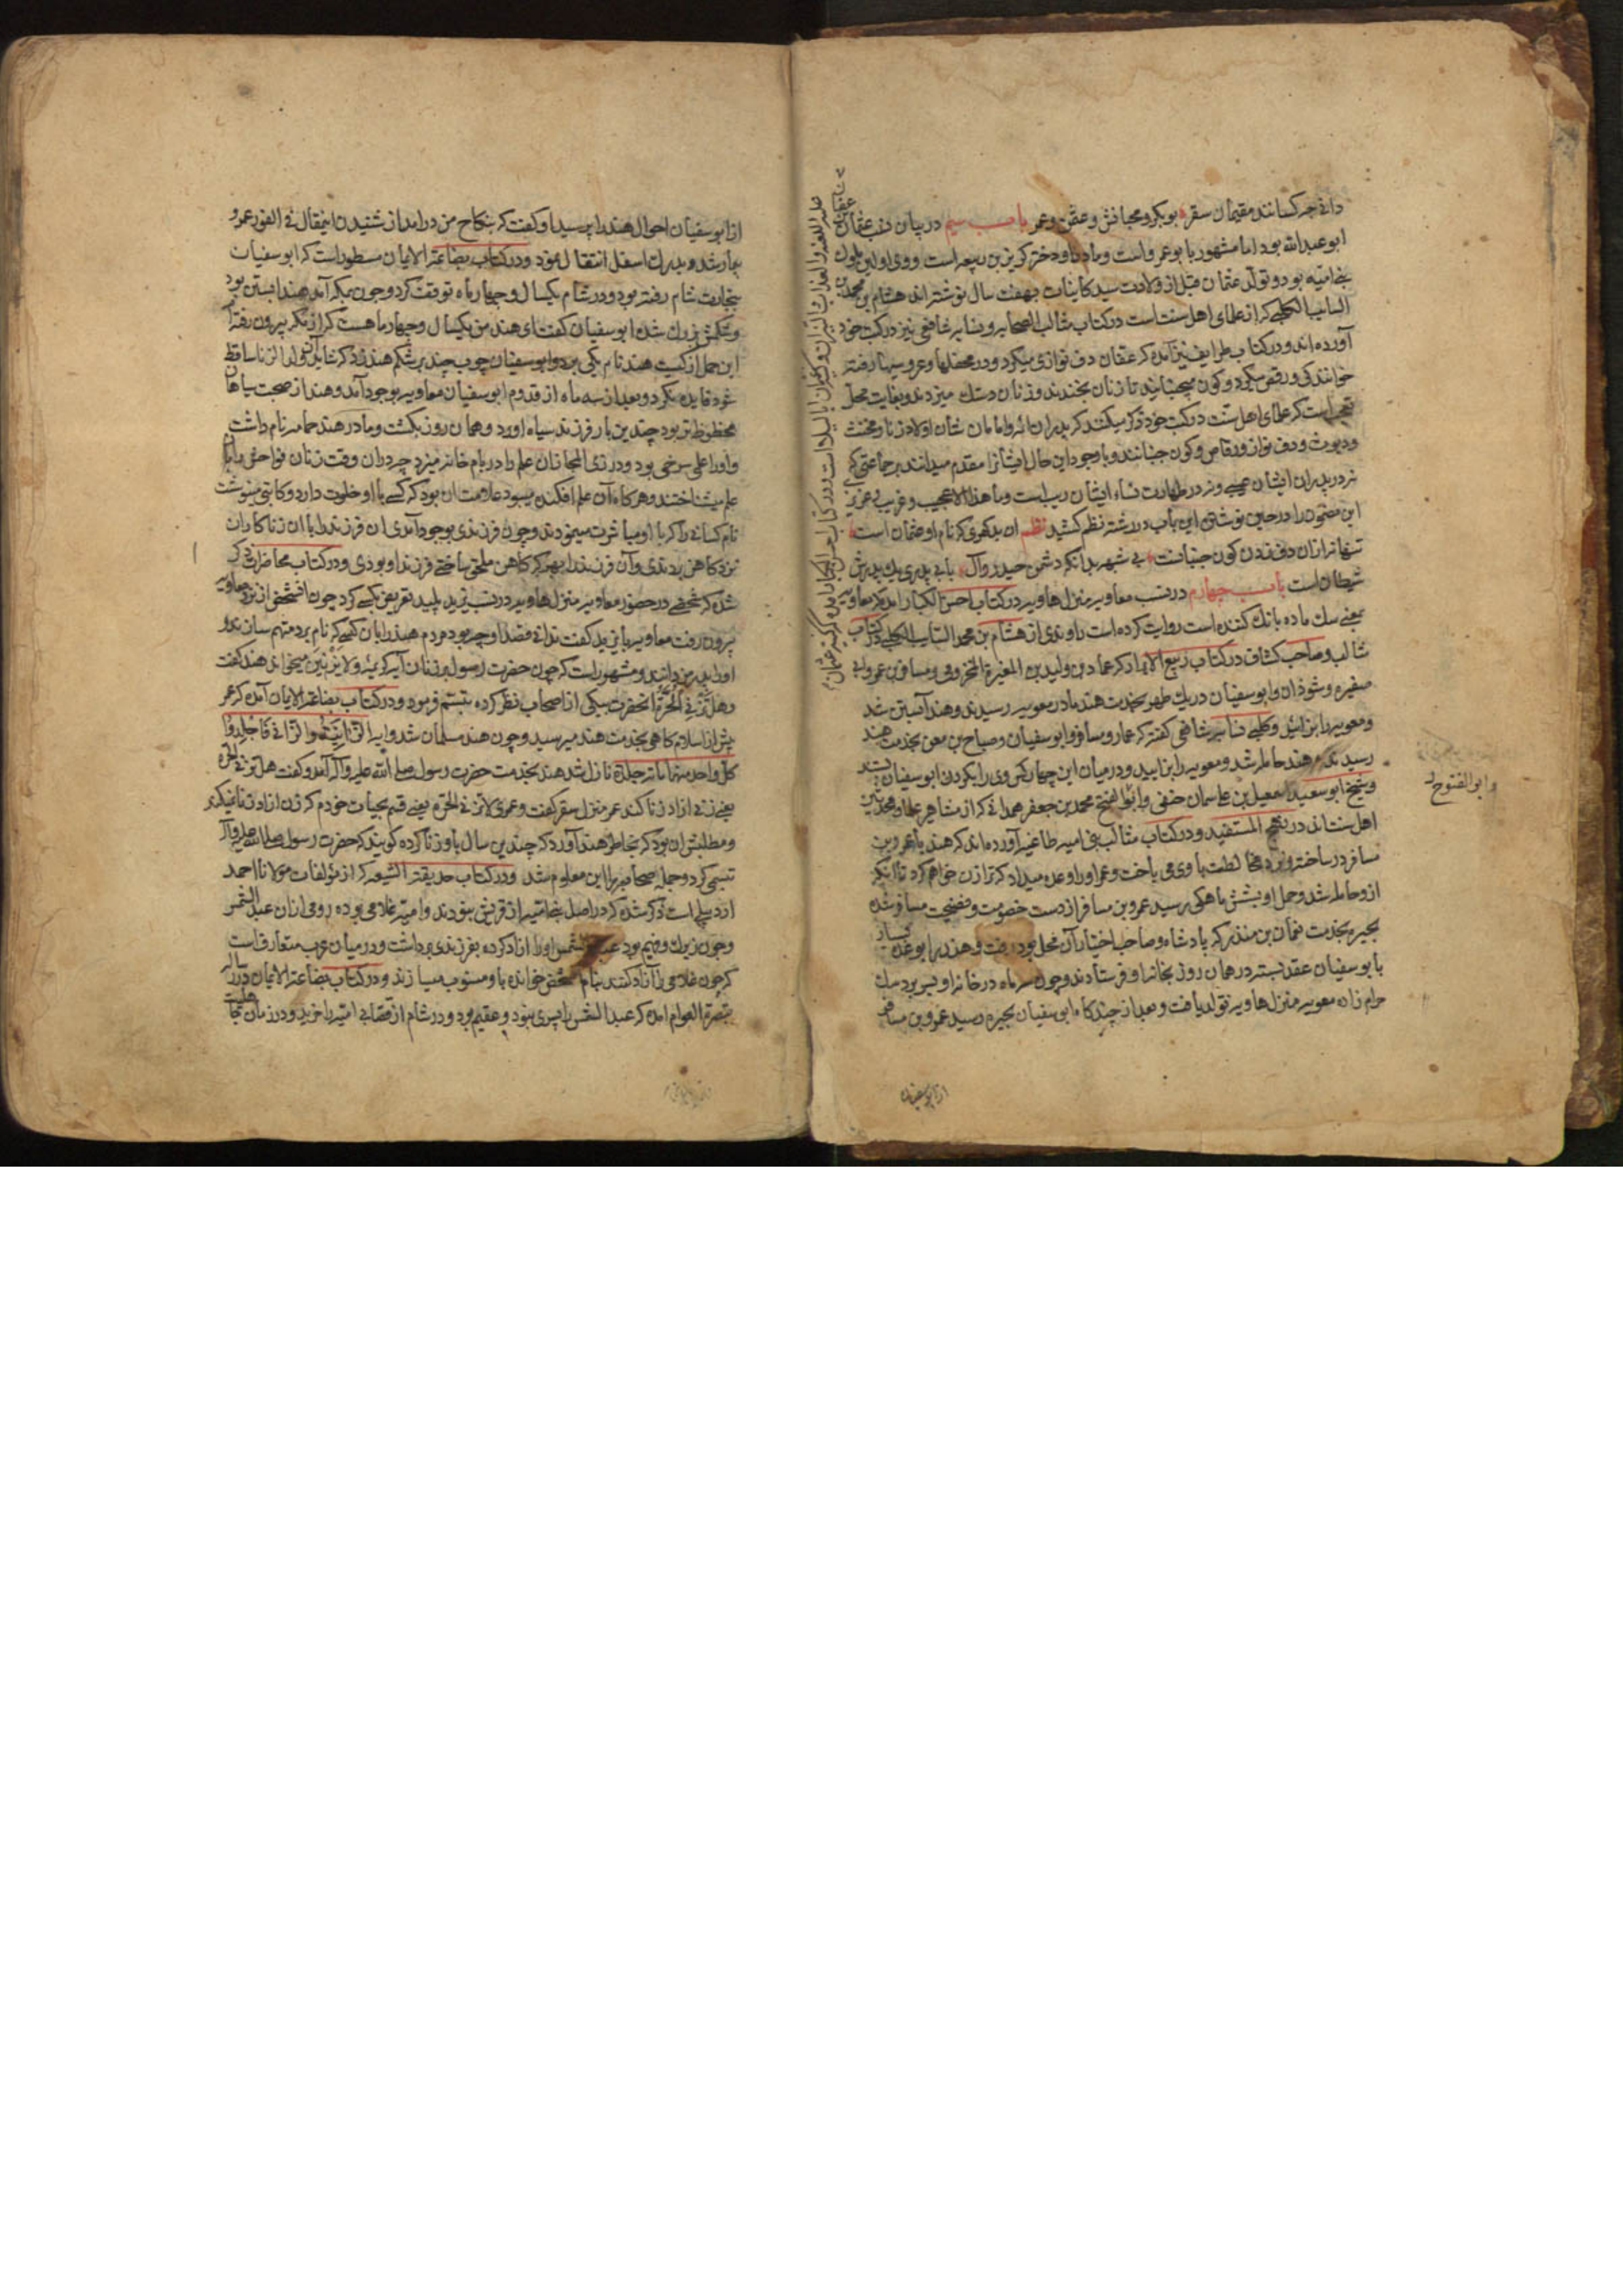 دانی چه کسانند مقیمان سقر بوبکر و مجانش و عفن و عمر باب سیم در بیان نسب عثمان بن عفان
ابو عبدالله بود اما مشهور بابو عمرو است و مادر او دختر کریز بن ربیعه است و وی اولین ملوک
بنی امیه بود و تولد عثمان قبل از ولادت سید کاینات بهفت سال نوشته اند هشام بن محمد بن
السائب الکلبی که از علمای اهل سنت است در کتاب مثالب الصحابه و شافعی نیز در کتب خود
آورده اند و در کتاب طرایف نیز آمده که عفان دف نوازی میکرد و در محفلها و عروسیها رفته
خوانندکی و رقص میکرد و کون میجنبانید تا زنان بخندند و زنان دستک میزدند و بغایت محل
تعجب است که علمای اهل سنت در کتب خود ذکر میکنند که پدران ائمه و امامان شان اولاد زنا و مخنث
و دیوث و دف نواز و رقاص و کون جنبانند و باوجود این حال ایشانرا مقدم میدانند بر جماعتی که
نه در پدران ایشان عیبی و نه در طهارت نساء ایشان ریب است و ما هذا الا عجیب و غریب
این مضمون را در حین نوشتن این باب در رشته نظم کشید نظم ان بدکهری که نام او عثمان است
تنها نه از ان دف زدن کون جنبانست بی شبهه بدانکه دشمن حیدر و آل باب پدری یک پدرش
شیطان است باب چهارم در نسب معاویه منزل هاویه در کتاب احسن الکبار آمده که معاویه
بمعنی سک ماده بانک کننده است روایت کرده است راوندی از هشام بن محمد السائب الکلبی در کتاب
مثالب و صاحب کشاف در کتاب ربیع الابرار که عماره بن ولید بن المغیرة المخزومی و مسافر بن عمرو و ابی
صغیره و شوذان و ابو سفیان در یک طهر بخدمت هند مادر معویه رسیدند و هند آبستن شد
و معویه را بزائید و کلبی نسابه شافعی کفته که عمار و مسافر و ابو سفیان و صباح بن مغن بخدمت هند
رسیدند هند حامله شد و معویه را بزایید و در میان این چهار کس وی را بکردن ابو سفیان بستند
و شیخ ابو سعید اسمعیل بن علی سمان حنفی و ابو الفتح محمد بن جعفر همدانی که از مشاهیر علما و محدثین
اهل سنتاند در بهجة المستفید و در کتاب مثالب بنی امیه طاغیه آورده اند که هند با عمرو بن
مسافر در ساخته و نرد مخالطت با وی می باخت و عمرو او را وعده میداد که ترا زن خواهم کرد تا آنکه
ازو حامله شد و حمل او بشش ماهکی رسید عمرو بن مسافر از دست خصومت و فضیحت مسافر شده
بحیره بخدمت نعمان بن منذر که پادشاه و صاحب اختیار آن محل بود رفت و هند را بوعده
با بو سفیان عقد بسته در همان روز بخانه او فرستادند و چون سه ماه در خانه او بسر برد سک
حرام زاده معویه منزل هاویه تولد یافت و بعد از چند کاه ابو سفیان بحیره رسید عمرو بن مسافر
از ابو سفیان
و ابو الفتوح
از ابو سفیان احوال هند را پرسید او کفت که بنکاح من درامد از شنیدن اینمقال فی الفور عمرو
بیمار شد و بدرک اسفل انتقال نمود و در کتاب بضاعة الایمان مسطور است که ابو سفیان
بتجارت شام رفته بود و در شام یکسال و چهار ماه توقف کرد و چون بمکه آمد هند آبستن بود
و شکمش بزرک شده ابو سفیان کفت ای هند من یکسال و چهار ماهست که از مکه بیرون رفته ام
این حمل از کیست هند نام یکی برد و ابو سفیان چوب چند بر شکم هند زد که شاید آن ولد الزنا ساقط
شود فایده نکرد و بعد از سه ماه از قدوم ابو سفیان معاویه بوجود آمد و هند از صحبت سیاهان
محظوظ تر بود چندین بار فرزند سیاه اورد و همان روز بکشت و مادر هند حمامه نام داشت
و او را علمی سرخی بود و در ذی المجاز آن علم را در بام خانه میزد چه دران وقت زنان فواحش را بآن
علم میشناختند و هر کاه آن علم افکنده میبود علامت ان بود که کسی با او خلوت دارد و کاتبی مینوشت
نام کسانی را که با او مباشرت مینمودند و چون فرزندی بوجود آمدی ان فرزند را با ان زناکاران
نزد کاهن بردندی و آن فرزند را بهر که کاهن ملحق ساختی فرزند او بودی و در کتاب محاضرات ذکر
شده که شخصی در حضور معاویه منزل هاویه در نسب یزید پلید تعریض بکسی کرد چون انشخص از نزد معاویه
بیرون رفت معاویه با یزید کفت ندانی قصد او چه بود مردم هند را بان کسی که نام برد متهم سازند و
او را پدر من دانند و مشهور است که چون حضرت رسول بر زنان آیه کریمه ولا یزنین میخواند هند کفت
وهل تزنی الحرة انحضرت بیکی از اصحاب نظر کرده تبسم فرمود و در کتاب بضاعة الایمان آمده که عمر
پیش از اسلام کاهی بخدمت هند میرسید و چون هند مسلمان شد و آیه الزانیة والزانی فاجلدوا
کل واحد منهما مائة جلدة نازل شد هند بخدمت حضرت رسول صلی الله علیه و آله آمد و کفت هل تزنی الحرة
یعنی زنی ازاد زنا کند عمر منزل سقر کفت و عمری لا تزنی الحرة یعنی قسم بحیات خودم که زن ازاد زنا نمیکند
و مطلبش ان بود که بخاطر هند آورد که چندین سال با و زنا کرده کویند که حضرت رسول صلی الله علیه و آله
تبسمی کرد و جمله صحابه را این معلوم شد و در کتاب حدیقة الشیعه که از مؤلفات مولانا احمد
اردبیلی است ذکر شده که در اصل بنی امیه از قریش نبودند و امیه غلامی بوده رومی ازان عبد الشمس
و چون زیرک و فهیم بود عبد الشمس او را ازاد کرده بفرزندی برداشت و در میان عرب متعارف است
که چون غلامی را آزاد کنند بنام شخص خوانده باو منسوب میسازند و در کتاب بضاعة الایمان و در رساله
تبصرة العوام امده که عبد الشمس را پسری نبود و عقیم بود و در شام از قصابی امیه را خرید و در زمان